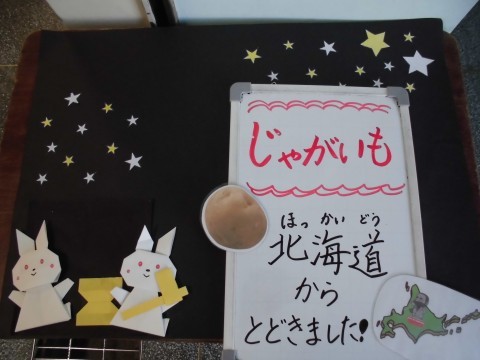 じゃがいも
ほっかいどう
北海道
から
とどきました!